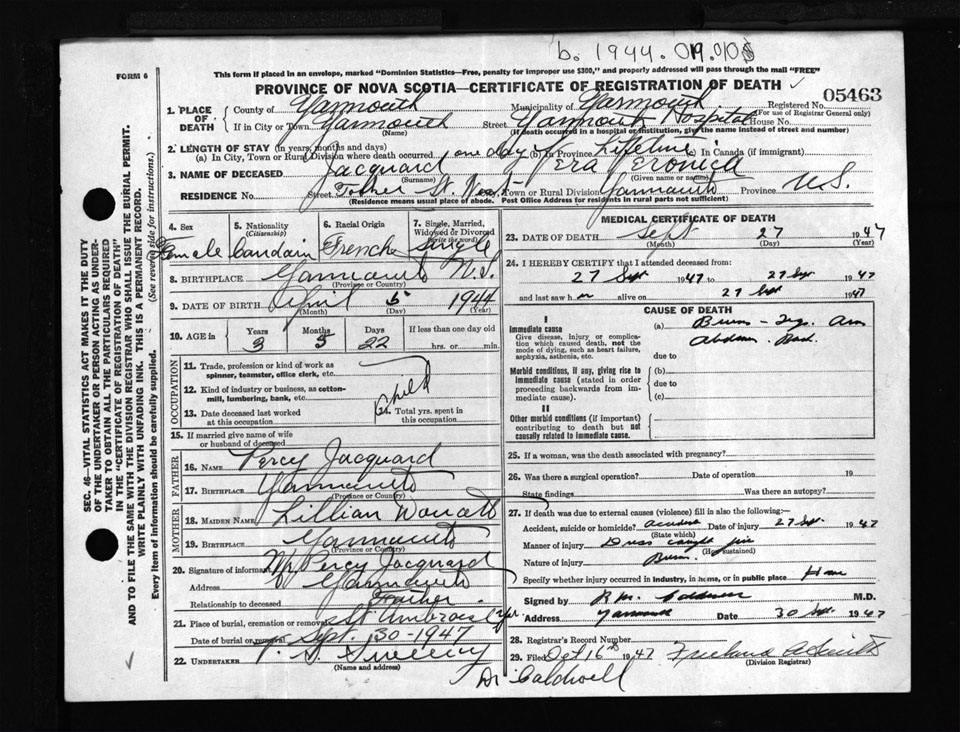 b. 1944.
FORM 6
This form if placed in an envelope, marked "Dominion Statistics—Free, penalty for improper use $300," and properly addressed will pass through the mail "FREE"
PROVINCE OF NOVA SCOTIA—CERTIFICATE OF REGISTRATION OF DEATH
05463
1. PLACE OF DEATH
County of Yarmouth
Municipality of Yarmouth
Registered No.
(For use of Registrar General only)
If in City or Town Yarmouth
(Name)
Street Yarmouth Hospital House No.
(If death occurred in a hospital or institution, give the name instead of street and number)
2. LENGTH OF STAY (in years, months and days)
(a) In City, Town or Rural Division where death occurred one day (b) In Province Lifetime (c) In Canada (if immigrant)
3. NAME OF DECEASED Jacquard
(Surname) (Given name or names)
RESIDENCE No. Street St. Town or Rural Division Yarmouth Province N.S.
(Residence means usual place of abode. Post Office Address for residents in rural parts not sufficient)
4. Sex
Female
5. Nationality
(Citizenship)
6. Racial Origin
French
7. Single, Married, Widowed or Divorced
(write the word)
Single
8. BIRTHPLACE Yarmouth N.S.
(Province or Country)
9. DATE OF BIRTH April 5 1944
(Month) (Day) (Year)
10. AGE in Years Months Days If less than one day old
3 5 22 hrs. or min.
OCCUPATION
11. Trade, profession or kind of work as spinner, teamster, office clerk, etc.
12. Kind of industry or business, as cotton-mill, lumbering, bank, etc.
Child
13. Date deceased last worked at this occupation
14. Total yrs. spent in this occupation
15. If married give name of wife or husband of deceased
FATHER
16. NAME Percy Jacquard
17. BIRTHPLACE Yarmouth
(Province or Country)
MOTHER
18. MAIDEN NAME Lillian
19. BIRTHPLACE Yarmouth
(Province or Country)
20. Signature of informant Mr Percy Jacquard
Address Yarmouth
Relationship to deceased Father
21. Place of burial, cremation or removal St
Date of burial or removal Sept. 30-1947
22. UNDERTAKER Sweeny
(Name and address)
Dr Caldwell
MEDICAL CERTIFICATE OF DEATH
23. DATE OF DEATH Sept 27 1947
(Month) (Day) (Year)
24. I HEREBY CERTIFY that I attended deceased from:
27 Sept 1947 to 27 Sept 1947
and last saw her alive on 27 Sept 1947
CAUSE OF DEATH
I
Immediate cause
Give disease, injury or complication which caused death, not the mode of dying, such as heart failure, asphyxia, asthenia, etc.
(a) Burns - Legs. Arm
Abdomen. Back.
due to
Morbid conditions, if any, giving rise to immediate cause (stated in order proceeding backwards from immediate).
(b)
due to
(c)
II
Other morbid conditions (if important) contributing to death but not causally related to immediate cause.
25. If a woman, was the death associated with pregnancy?
26. Was there a surgical operation? Date of operation 19
State findings Was there an autopsy?
27. If death was due to external causes (violence) fill in also the following:—
Accident, suicide or homicide? accident Date of injury 27 Sept. 1947
(State which)
Manner of injury Dress caught fire
(How sustained)
Nature of injury Burns
Specify whether injury occurred in industry, in home, or in public place Home
Signed by M.D.
Address Yarmouth Date 30 Sept. 1947
28. Registrar's Record Number
29. Filed Oct 16th 1947
(Division Registrar)
SEC. 46—VITAL STATISTICS ACT MAKES IT THE DUTY OF THE UNDERTAKER OR PERSON ACTING AS UNDERTAKER TO OBTAIN ALL THE PARTICULARS REQUIRED IN THE "CERTIFICATE OF REGISTRATION OF DEATH" AND TO FILE THE SAME WITH THE DIVISION REGISTRAR WHO SHALL ISSUE THE BURIAL PERMIT.
WRITE PLAINLY WITH UNFADING INK. THIS IS A PERMANENT RECORD.
Every item of information should be carefully supplied. (See reverse side for instructions.)